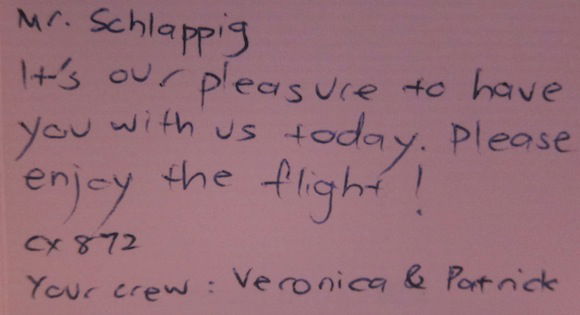 Mr. Schlappig
It's our pleasure to have
you with us today. Please
enjoy the flight!
CX 872
Your crew: Veronica & Patrick